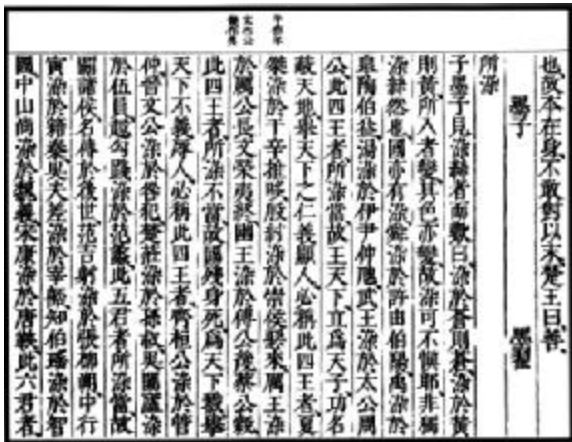 也故本在身不敢對以末楚王曰善
墨子 墨翟
所染
子墨子見染絲者而歎曰染於蒼則蒼染於黃
則黃所入者變其色亦變故染可不慎耶非獨
染絲然也國亦有染舜染於許由伯陽禹染於
皋陶伯益湯染於伊尹仲虺武王染於太公周
公此四王者所染當故王天下立為天子功名
蔽天地舉天下之仁義顯人必稱此四王者夏
桀染於干辛推哆殷紂染於崇侯惡來厲王染
於厲公長文榮夷終幽王染於傅公蔡公穀
此四王者所染不當故國殘身死為天下戮舉
天下不義辱人必稱此四王者齊桓公染於管
仲晉文公染於咎犯楚莊染於孫叔吳闔廬染
於伍員越勾踐染於范蠡此五君者所染當故
霸諸侯名傳於後世范吉射染於張柳朔中行
寅染於籍秦吳夫差染於宰嚭知伯瑤染於智
國中山尚染於魏義宋康染於唐鞅此六君者